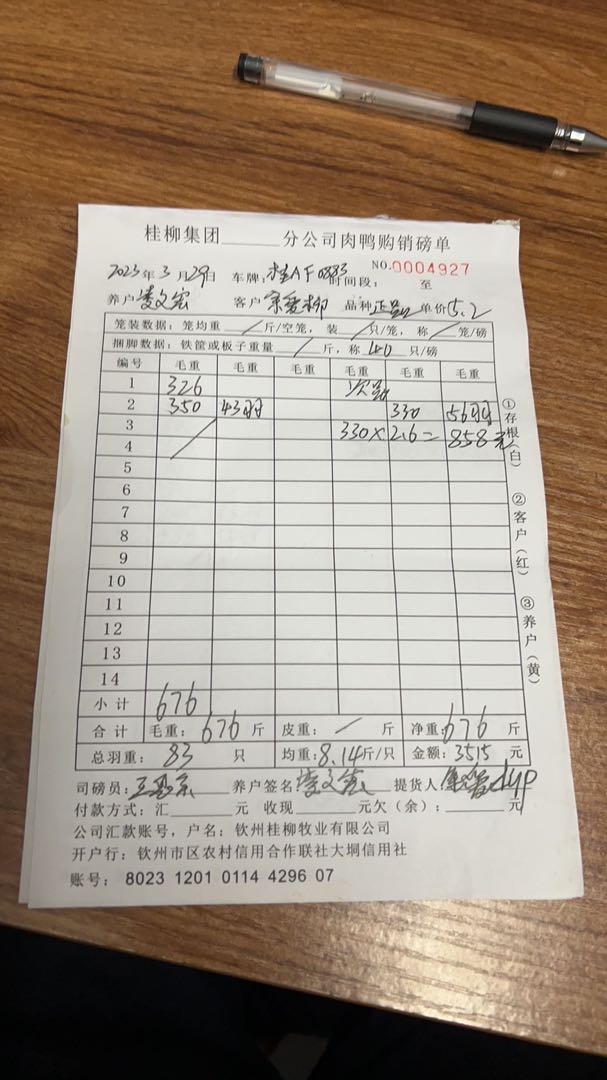 桂柳集团______分公司肉鸭购销磅单
NO.0004927
2023年3月29日 车牌:桂AF0883 时间段: 至
养户 凌文宏 客户 品种 正品 单价5.2
笼装数据:笼均重 / 斤/空笼,装 / 只/笼,称 / 笼/磅
捆脚数据:铁筐或板子重量 / 斤,称 40 只/磅
编号 毛重 毛重 毛重 毛重 毛重 毛重
1 326 次品
2 350 43羽 330 56羽
3 330×2.6= 858元
4 /
5
6
7
8
9
10
11
12
13
14
小计 676
合计 毛重:676 斤 皮重: / 斤 净重:676 斤
总羽重: 83 只 均重:8.14斤/只 金额:3515 元
司磅员: 养户签名 凌文宏 提货人
付款方式:汇______元 收现______元欠(余):______元
公司汇款账号,户名:钦州桂柳牧业有限公司
开户行:钦州市区农村信用合作联社大垌信用社
账号:8023 1201 0114 4296 07
①存根(白)
②客户(红)
③养户(黄)